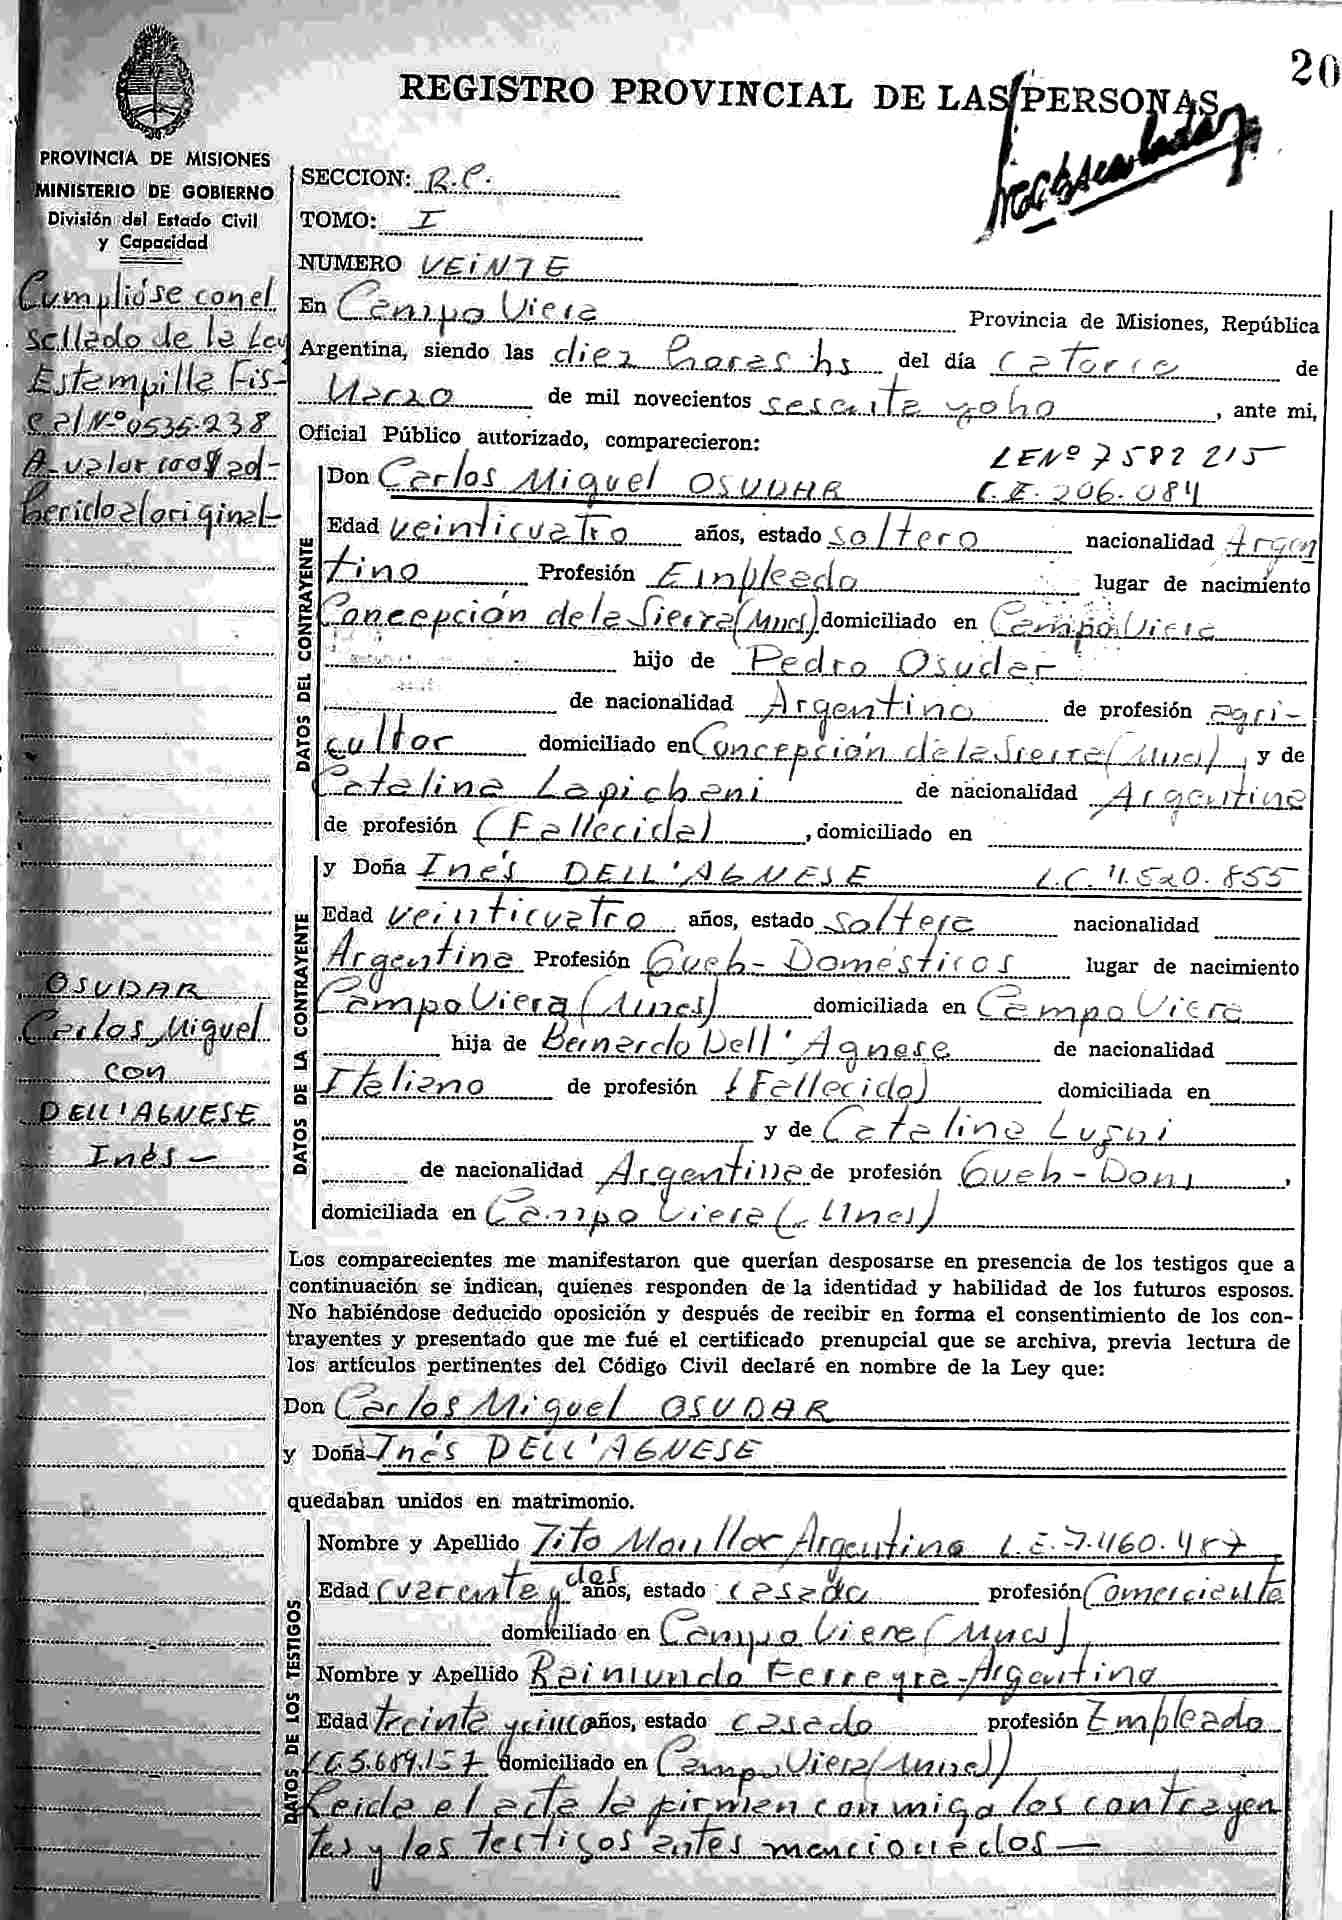 20
REGISTRO PROVINCIAL DE LAS PERSONAS
PROVINCIA DE MISIONES
MINISTERIO DE GOBIERNO
División del Estado Civil
y Capacidad
Cumplióse con el
sellado de la Ley
Estampilla Fis-
cal Nº 0535.238
A valor 100$ ad-
herido al original-
OSUDAR
Carlos Miguel
con
DELL'AGNESE
Inés-
SECCION: R.C.
TOMO: I
NUMERO VEINTE
En Campo Viera Provincia de Misiones, República
Argentina, siendo las diez horas hs del día catorce de
Marzo de mil novecientos sesenta y ocho, ante mi,
Oficial Público autorizado, comparecieron:
LE Nº 7582215
DATOS DEL CONTRAYENTE
Don Carlos Miguel OSUDAR C.I. 206.084
Edad veinticuatro años, estado soltero nacionalidad Argen
tino Profesión Empleado lugar de nacimiento
Concepción de la Sierra (Mnes) domiciliado en Campo Viera
hijo de Pedro Osudar
de nacionalidad Argentino de profesión agri-
cultor domiciliado en Concepción de la Sierra (Mnes), y de
Catalina Lapicheni de nacionalidad Argentina
de profesión (Fallecida), domiciliado en
DATOS DE LA CONTRAYENTE
y Doña Inés DELL'AGNESE L.C. 11.520.855
Edad veinticuatro años, estado soltera nacionalidad
Argentina Profesión Queh-Domésticos lugar de nacimiento
Campo Viera (Mnes) domiciliada en Campo Viera
hija de Bernardo Dell'Agnese de nacionalidad
Italiano de profesión (Fallecido) domiciliada en
y de Catalina Lugni
de nacionalidad Argentina de profesión Queh-Dom,
domiciliada en Campo Viera (Mnes)
Los comparecientes me manifestaron que querían desposarse en presencia de los testigos que a
continuación se indican, quienes responden de la identidad y habilidad de los futuros esposos.
No habiéndose deducido oposición y después de recibir en forma el consentimiento de los con-
trayentes y presentado que me fué el certificado prenupcial que se archiva, previa lectura de
los artículos pertinentes del Código Civil declaré en nombre de la Ley que:
Don Carlos Miguel OSUDAR
y Doña Inés DELL'AGNESE
quedaban unidos en matrimonio.
DATOS DE LOS TESTIGOS
Nombre y Apellido Tito Moullor Argentino L.E. 7.460.457
Edad cuarenta y dos años, estado casado profesión Comerciante
domiciliado en Campo Viera (Mnes)
Nombre y Apellido Raimundo Ferreyra-Argentino
Edad treinta y cinco años, estado casado profesión Empleado
5.689.157 domiciliado en Campo Viera (Mnes)
Leida el acta la firman conmigo los contrayen
tes y los testigos antes mencionados-